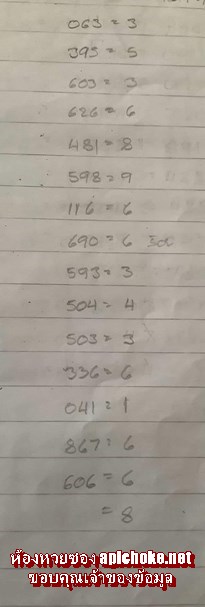 063 = 3
395 = 5
603 = 3
626 = 6
481 = 8
598 = 9
116 = 6
690 = 6
593 = 3
504 = 4
503 = 3
336 = 6
041 = 1
867 = 6
606 = 6
= 8
ห้องหวยซอง apichoke.net
ขอบคุณเจ้าของข้อมูล